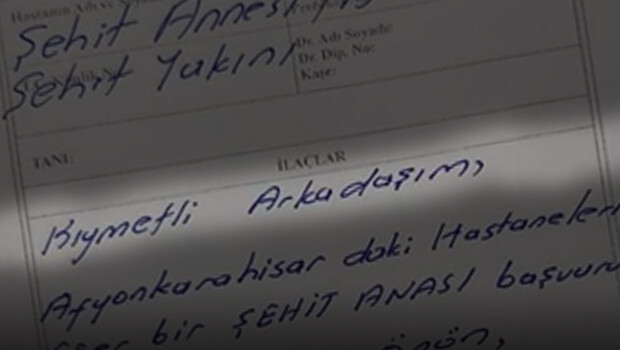 Hastanın Adı ve
Şehit Annesi
Şehit Yakını
Dr. Adı Soyadı:
Dr. Dip. No:
Kaşe:
TANI:
İLAÇLAR
Kıymetli Arkadaşım,
Afyonkarahisar daki Hastaneleri
bir ŞEHİT ANASI başvuru